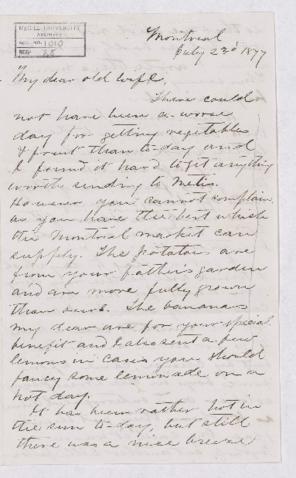 McGILL UNIVERSITY
ARCHIVES
ACC. NO. 1010
REF.
Montreal
July 23d 1877
My dear old wife,
There could
not have been a worse
day for getting vegetables
& fruit than to-day and
I found it hard to get anything
worth sending to Metis.
However you cannot complain
as you have the best which
the Montreal market can
supply. The potatoes are
from your father's garden
and are more fully grown
than ours. The bananas
my dear are for your special
benefit and I also sent a few
lemons in case you should
fancy some lemonade on a
hot day.
It has been rather hot in
the sun to-day, but still
there was a nice breeze